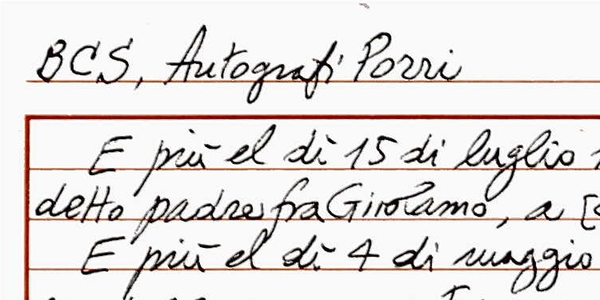 BCS, Autografi Porri
E più el dì 15 di luglio 1
detto padre fra Girolamo, a [
E più el dì 4 di maggio